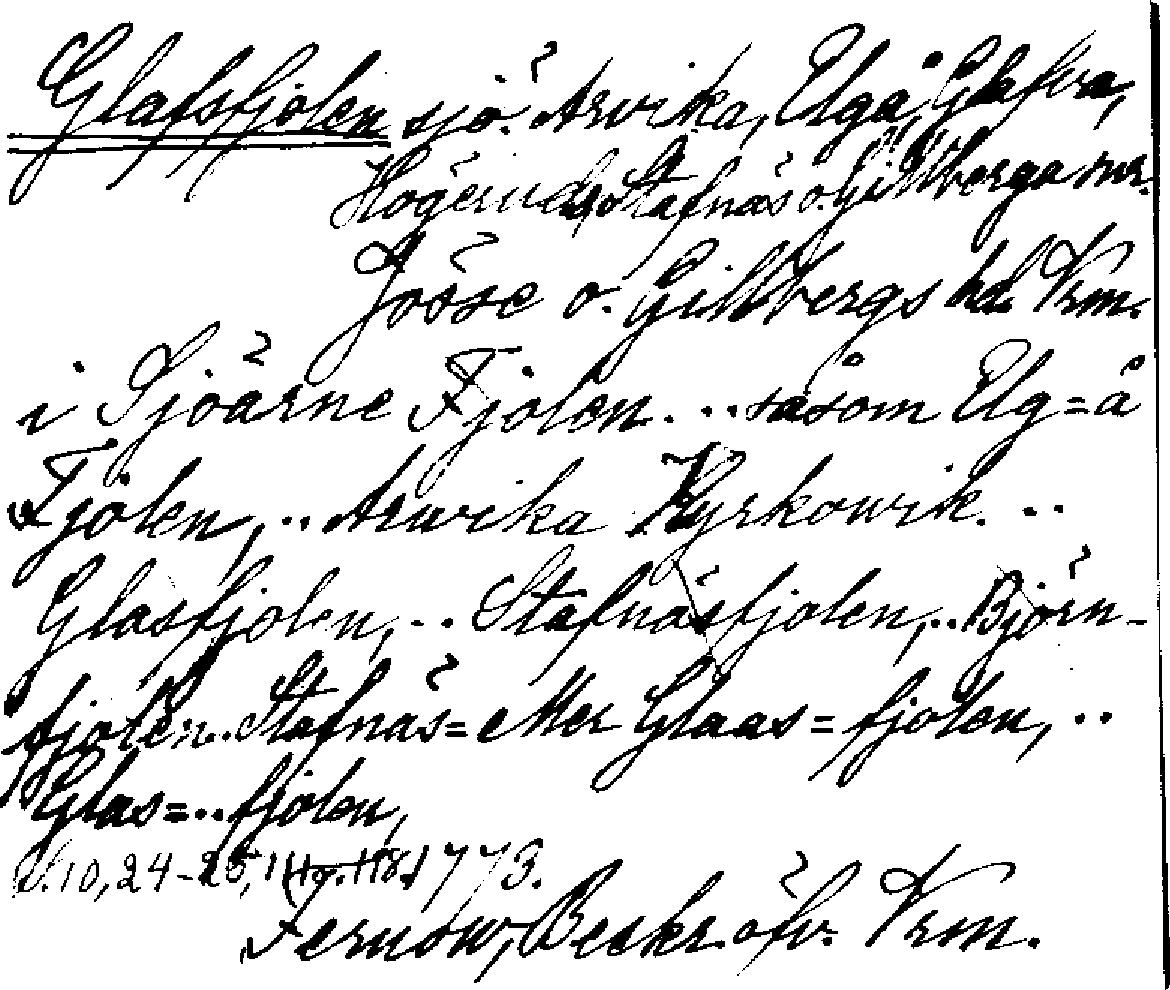 Glafsfjolen sjö. Arvika, Elgå, Glafva,
Högerud, Stafnäs o. Gillberga snr.
Jösse o. Gillbergs hd. Vrm.
i Sjöärne Fjolen. ... såsom Elg=å
Fjolen, .. Arwika Kyrkowik. ..
Glasfjolen, ... Stafnäsfjolen, .. Björn-
fjolen .. Stafnäs= eller Glaas=fjolen, ..
Glas=..fjolen,
S. 10, 24-25, 1773.
Fernow, Beskr. öfv. Vrm.